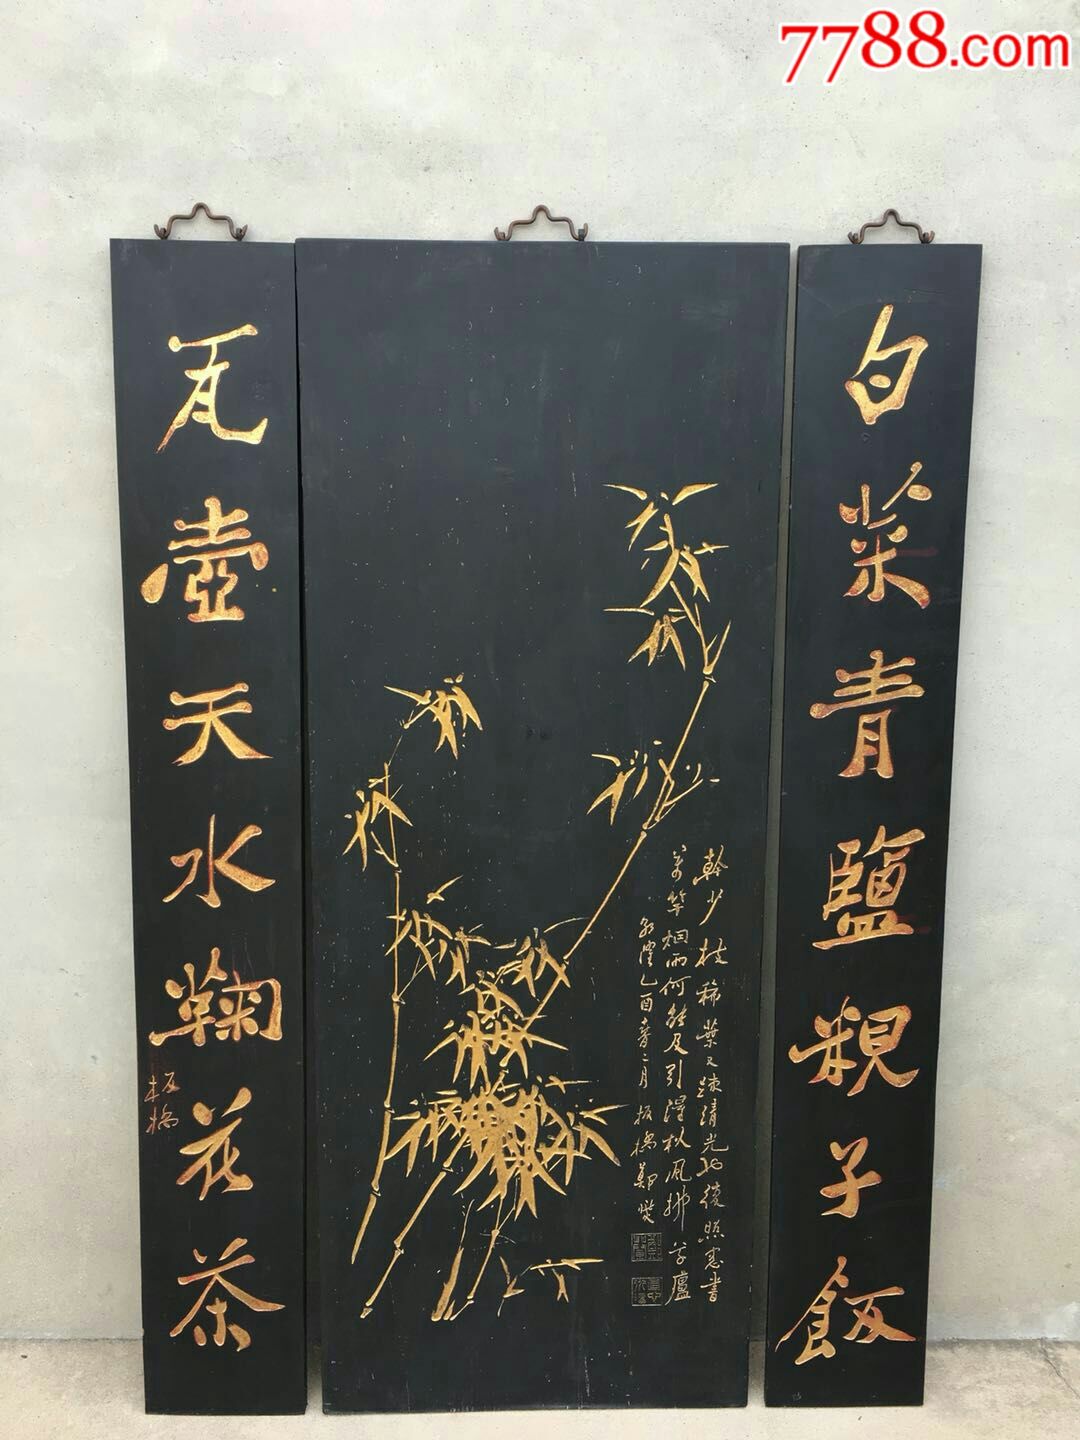 7788.com
白菜青鹽粯子飯
幹少枝稀葉又疎清光
照窗書
万竿烟雨何能及引得秋風拂草廬
乾隆乙酉春二月板橋鄭燮
瓦壺天水鞠花茶
板橋